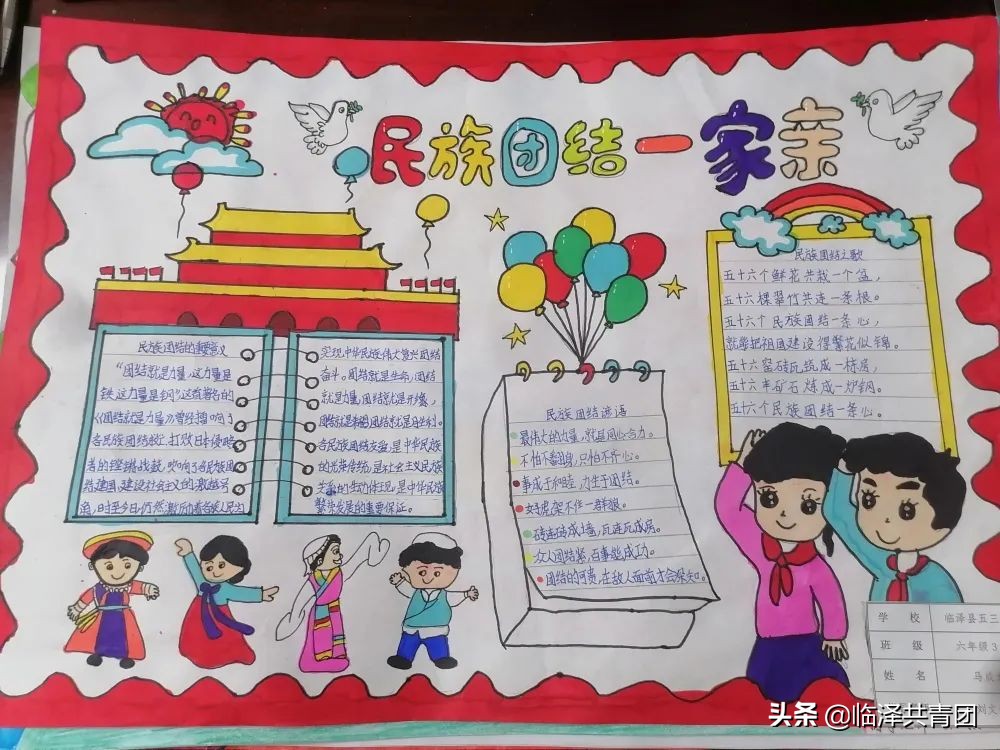 民族团结一家亲
民族团结的重要意义
“团结就是力量,这力量是
铁,这力量是钢”这首著名的
《团结就是力量》曾经擂响了
各民族团结一致打败日本侵略
者的铿锵战鼓,吹响了各民族团
结建国、建设社会主义的激越号
角,时至今日仍然激励着各族人民为
实现中华民族伟大复兴团结
奋斗。团结就是生命,团结
就是力量,团结就是开缘,
团结就是幸福,团结就是胜利。
各民族团结友爱,是中华民族
的光荣传统,是社会主义民族
关系的生动体现,是中华民族
繁荣发展的重要保证。
民族团结谚语
最伟大的力量,就是同心合力。
不怕巨翻身,只怕不齐心。
事成于和睦,力生于团结。
好虎架不住一群狼。
砖连砖成墙,瓦连瓦成房。
众人团结紧,百事能成功。
团结的可贵,在敌人面前才会深知。
民族团结之歌
五十六个鲜花共栽一个盆,
五十六棵翠竹共连一条根。
五十六个民族团结一条心,
就能把祖国建设得繁花似锦。
五十六窑砖瓦筑成一栋房,
五十六车矿石炼成一炉钢。
五十六个民族团结一条心。
学 校 临泽县五三
班 级 六年级3
姓 名 马
头条 @临泽共青团